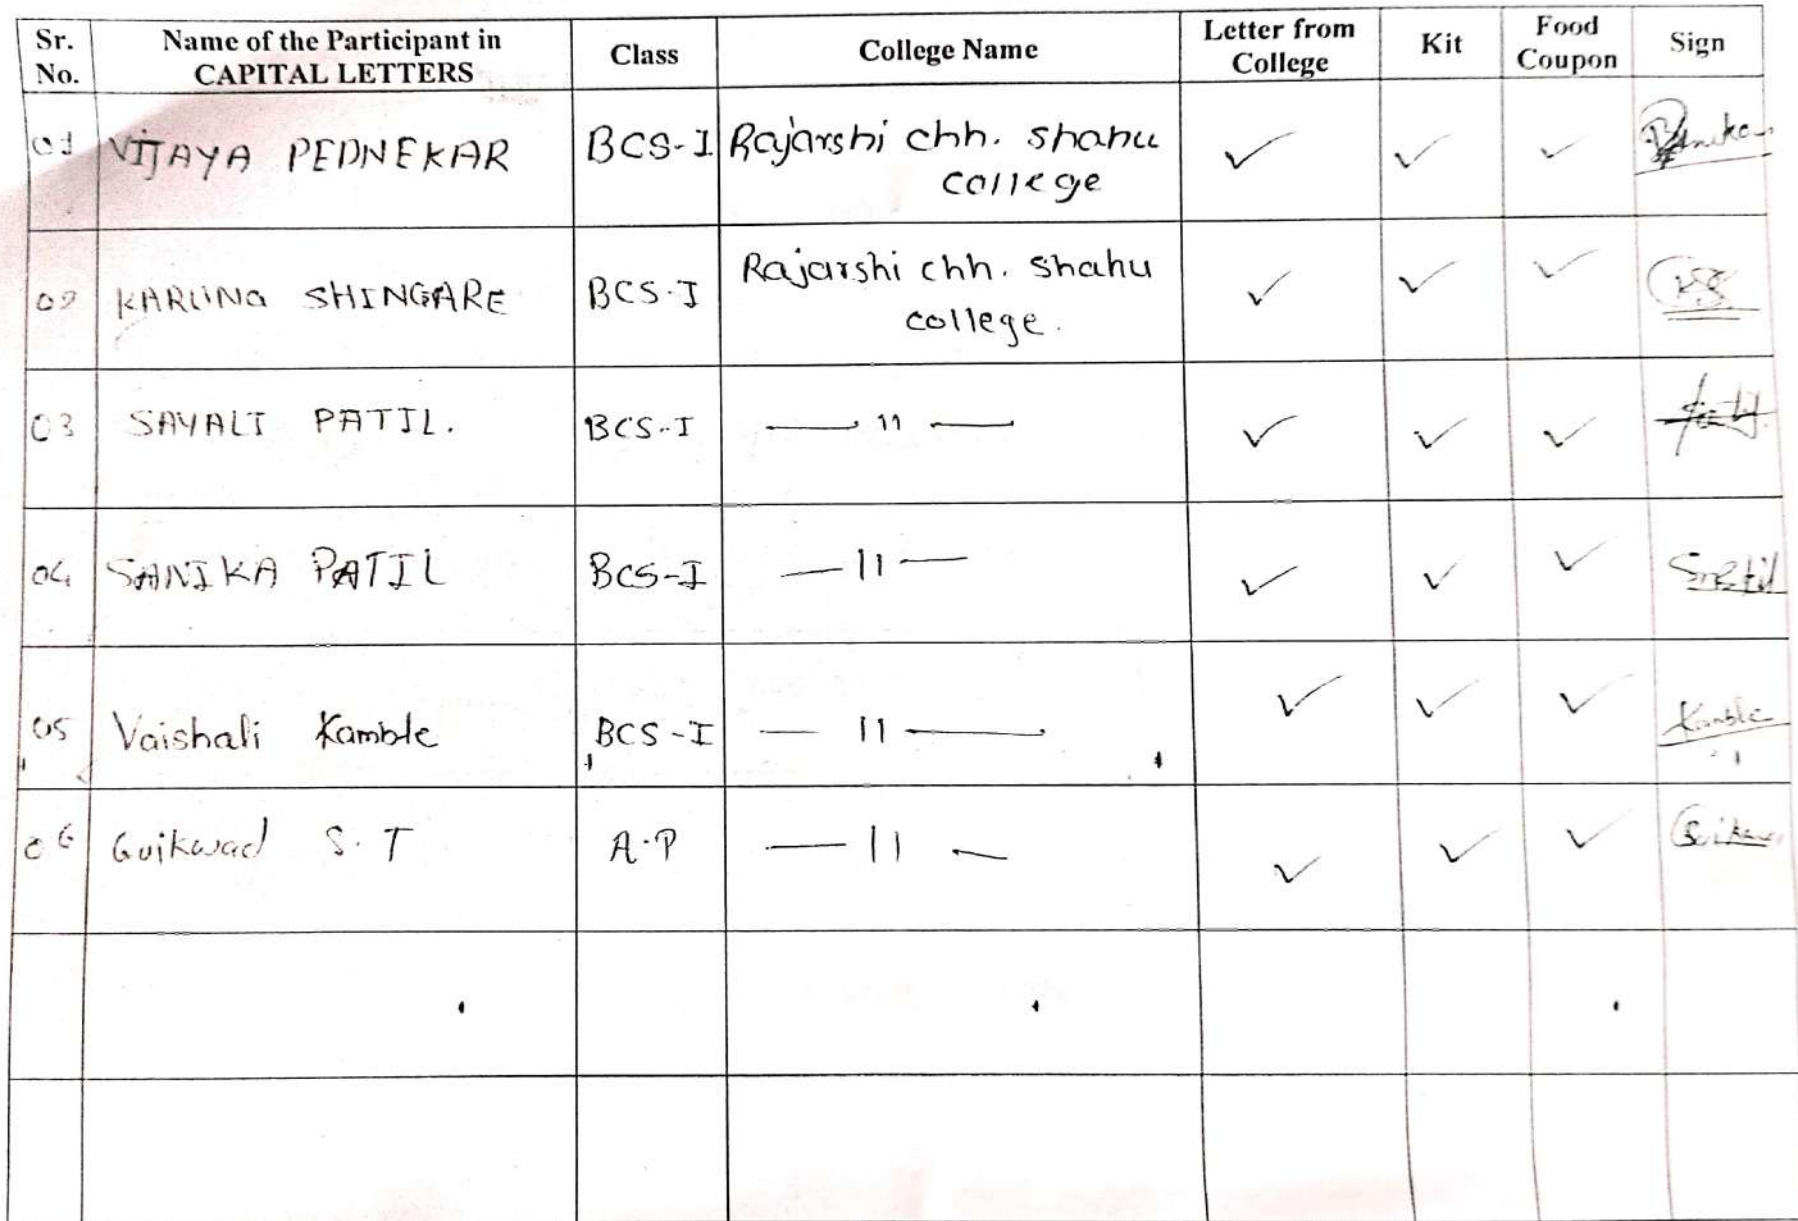 Sr. No. Name of the Participant in CAPITAL LETTERS Class College Name Letter from College Kit Food Coupon Sign
01 VIJAYA PEDNEKAR BCS-I Rajarshi chh. shahu college ✓ ✓ ✓
02 KARUNA SHINGARE BCS-I Rajarshi chh. shahu college. ✓ ✓ ✓ KS
03 SAYALI PATIL. BCS-I — 11 — ✓ ✓ ✓
04 SANIKA PATIL BCS-I — 11 — ✓ ✓ ✓
05 Vaishali Kamble BCS-I — 11 — ✓ ✓ ✓ Kamble
06 Gaikwad S.T A.P — 11 — ✓ ✓ ✓